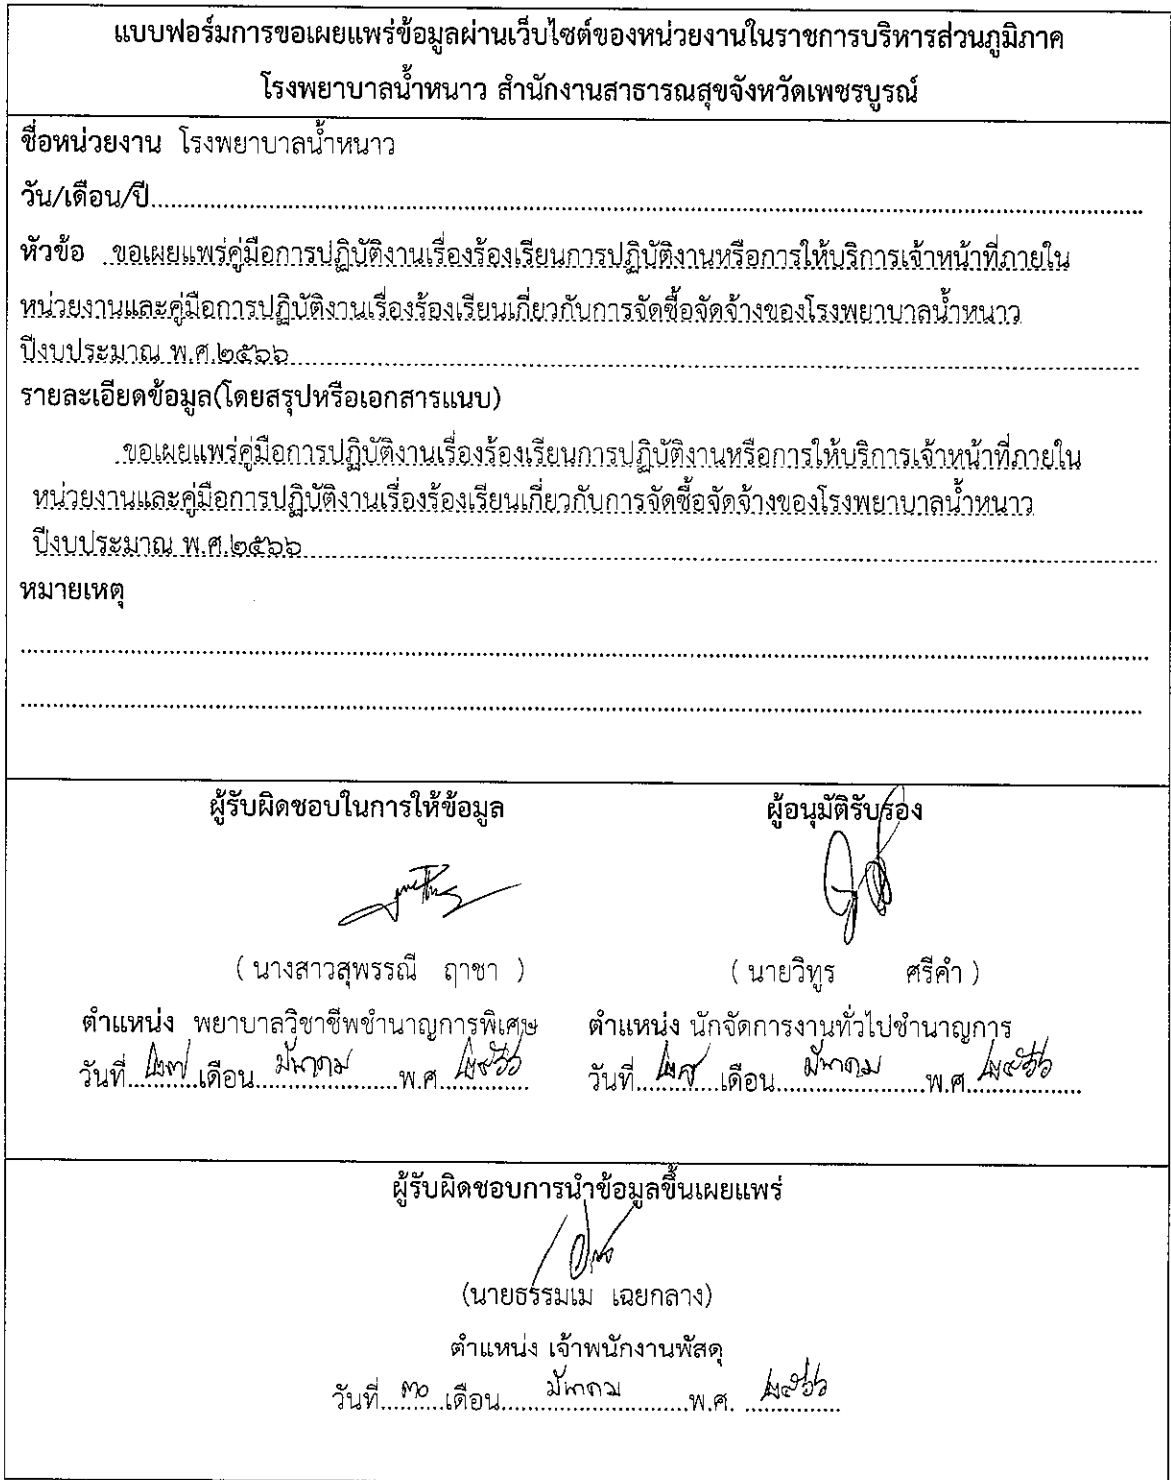 แบบฟอร์มการขอเผยแพร่ข้อมูลผ่านเว็บไซต์ของหน่วยงานในราชการบริหารส่วนภูมิภาค
โรงพยาบาลน้ำหนาว สำนักงานสาธารณสุขจังหวัดเพชรบูรณ์
ชื่อหน่วยงาน โรงพยาบาลน้ำหนาว
วัน/เดือน/ปี
หัวข้อ ขอเผยแพร่คู่มือการปฏิบัติงานเรื่องร้องเรียนการปฏิบัติงานหรือการให้บริการเจ้าหน้าที่ภายใน
หน่วยงานและคู่มือการปฏิบัติงานเรื่องร้องเรียนเกี่ยวกับการจัดซื้อจัดจ้างของโรงพยาบาลน้ำหนาว
ปีงบประมาณ พ.ศ.๒๕๖๖
รายละเอียดข้อมูล(โดยสรุปหรือเอกสารแนบ)
ขอเผยแพร่คู่มือการปฏิบัติงานเรื่องร้องเรียนการปฏิบัติงานหรือการให้บริการเจ้าหน้าที่ภายใน
หน่วยงานและคู่มือการปฏิบัติงานเรื่องร้องเรียนเกี่ยวกับการจัดซื้อจัดจ้างของโรงพยาบาลน้ำหนาว
ปีงบประมาณ พ.ศ.๒๕๖๖
หมายเหตุ
ผู้รับผิดชอบในการให้ข้อมูล ผู้อนุมัติรับรอง
( นางสาวสุพรรณี ฤาชา ) ( นายวิทูร ศรีคำ )
ตำแหน่ง พยาบาลวิชาชีพชำนาญการพิเศษ ตำแหน่ง นักจัดการงานทั่วไปชำนาญการ
วันที่ ๒๗ เดือน มีนาคม พ.ศ ๒๕๖๖ วันที่ เดือน มีนาคม พ.ศ ๒๕๖๖
ผู้รับผิดชอบการนำข้อมูลขึ้นเผยแพร่
(นายธรรมเม เฉยกลาง)
ตำแหน่ง เจ้าพนักงานพัสดุ
วันที่ ๓๐ เดือน มีนาคม พ.ศ. ๒๕๖๖